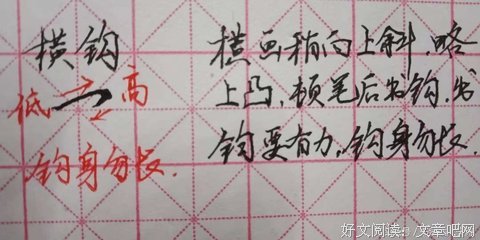 横钩
低 高
钩身勿长.
横画稍向上斜.略
上凸,顿笔后出钩,出
钩要有力,钩身勿长.
好文阅读:/文章吧网